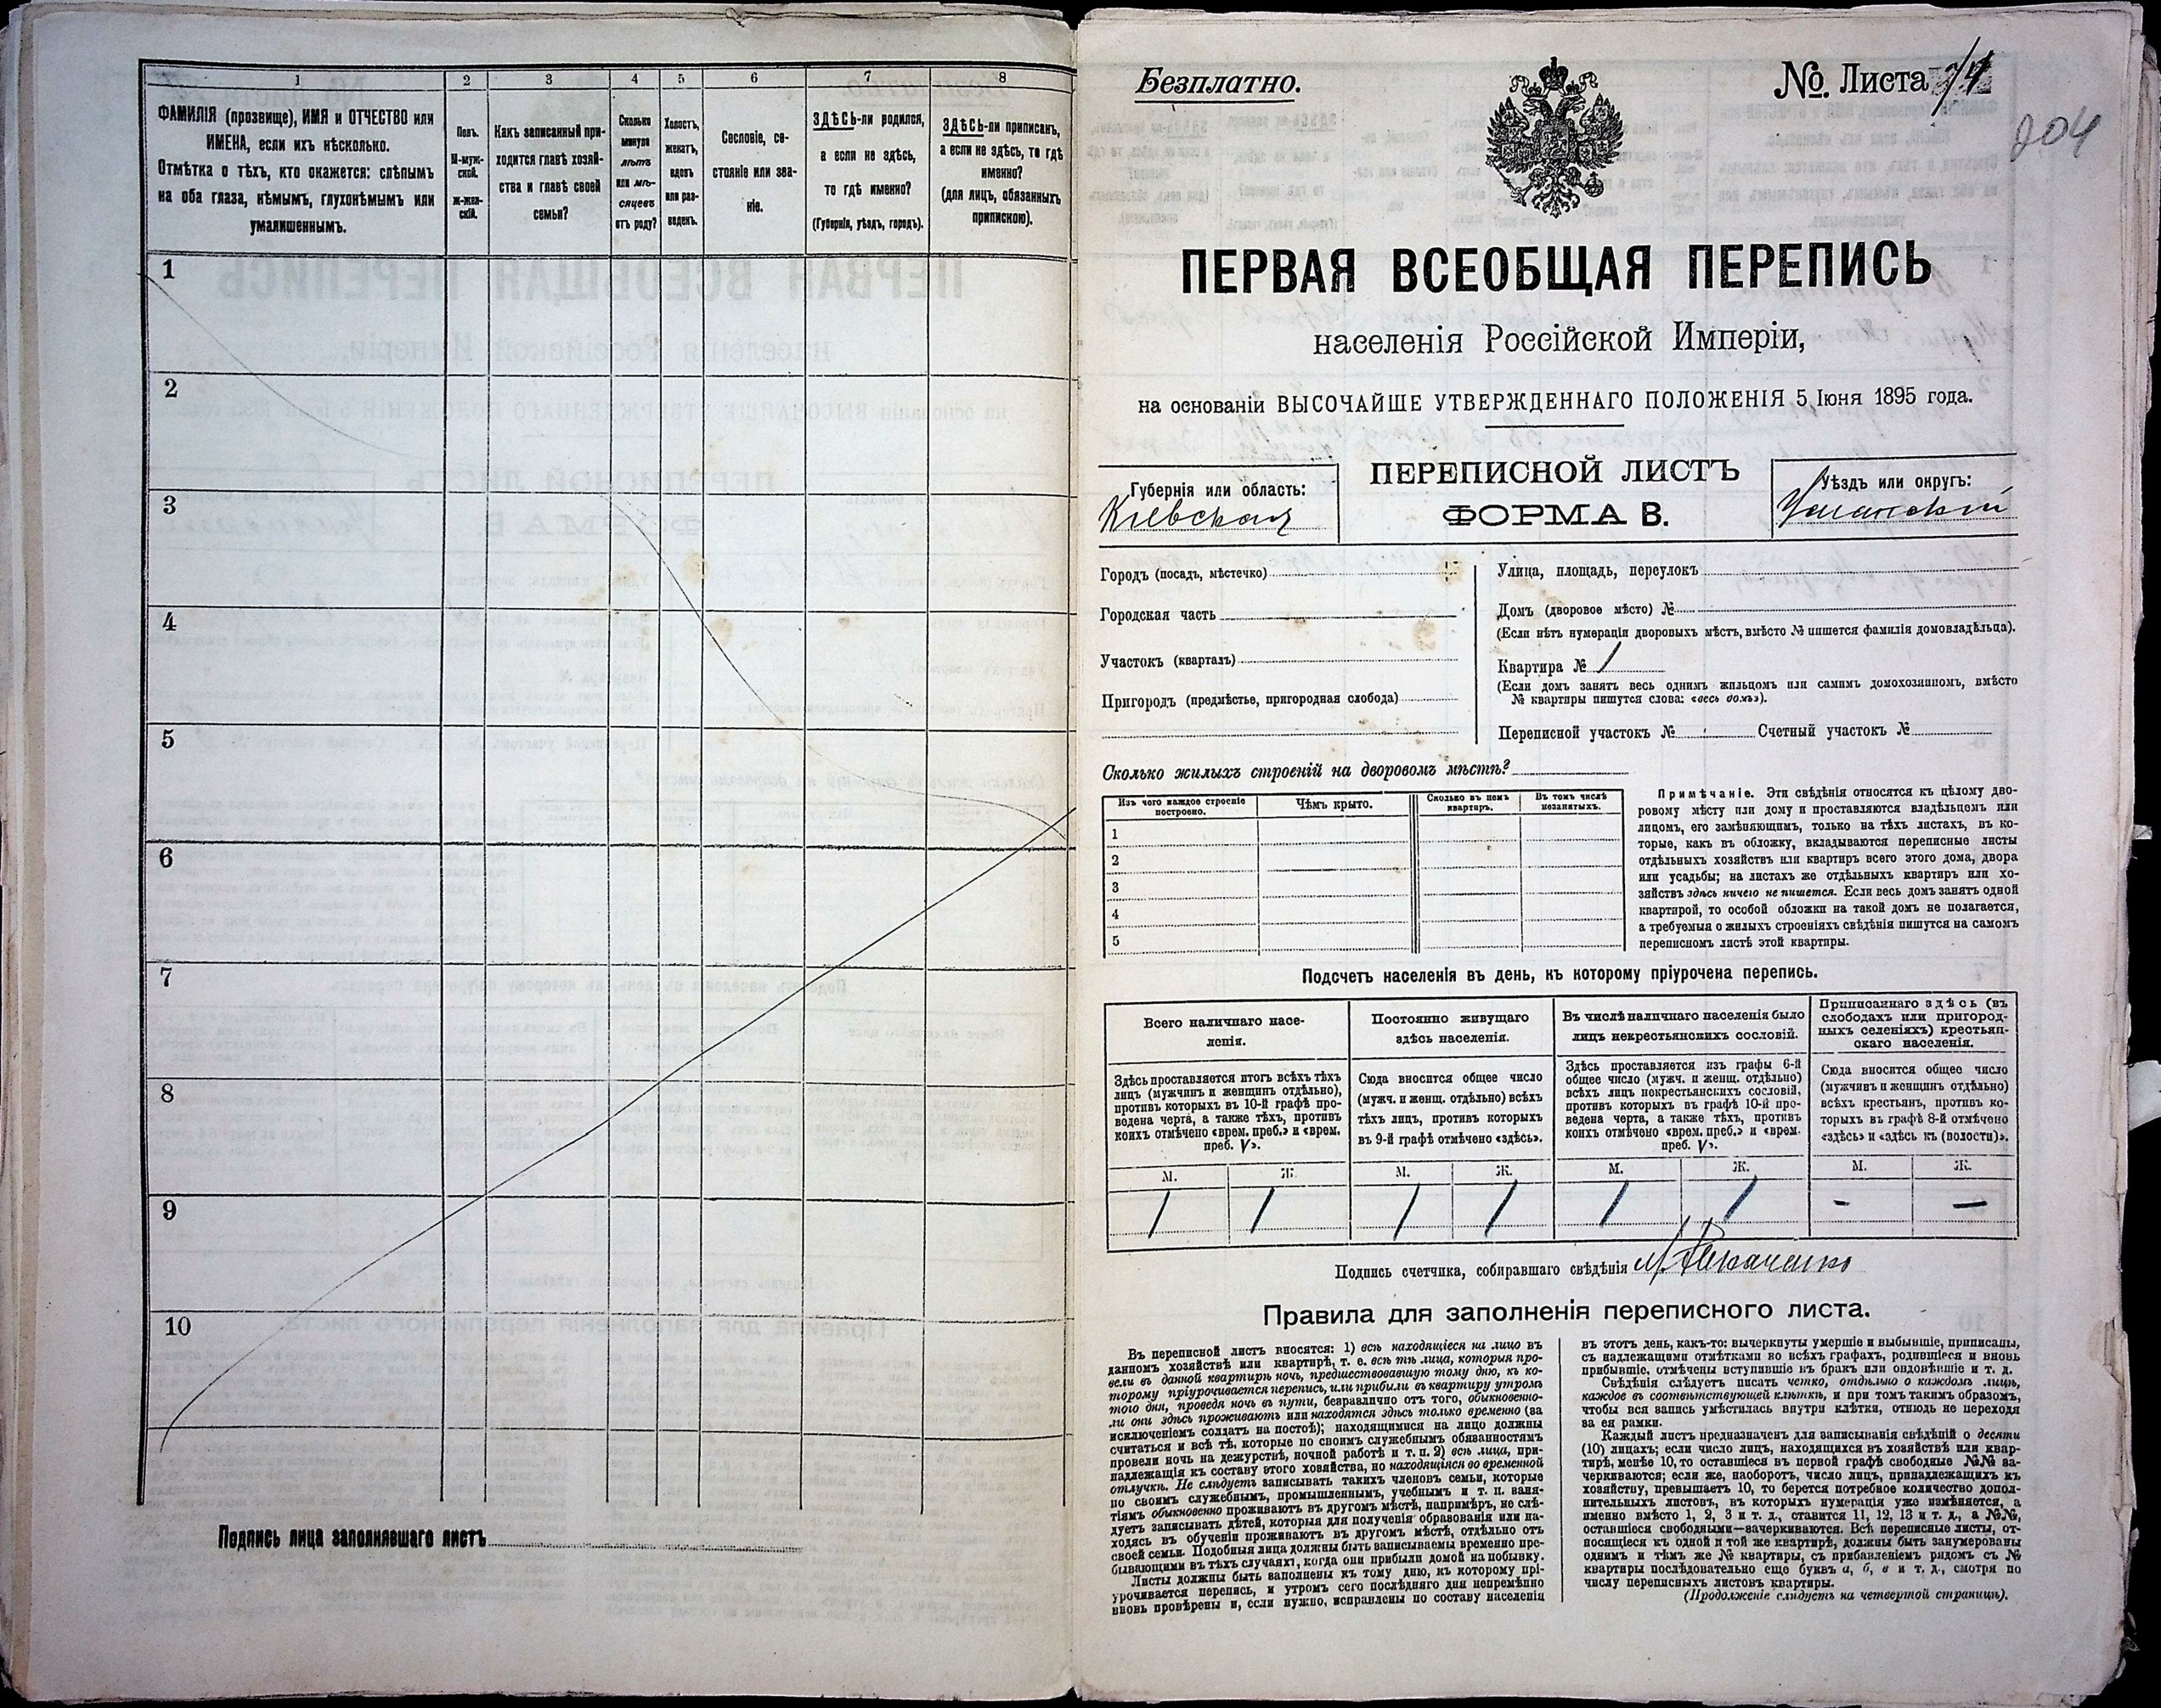 1 2 3 4 5 6 7 8
ФАМИЛІЯ (прозвище), ИМЯ и ОТЧЕСТВО или
ИМЕНА, если ихъ нѣсколько.
Отмѣтка о тѣхъ, кто окажется: слѣпымъ
на оба глаза, нѣмымъ, глухонѣмымъ или
умалишеннымъ.
Полъ.
М-муж-
ской.
Ж-жен-
скій.
Какъ записанный при-
ходится главѣ хозяй-
ства и главѣ своей
семьи?
Сколько
минуло
лѣтъ
или мѣ-
сяцевъ
отъ роду?
Холостъ,
женатъ,
вдовъ
или раз-
веденъ.
Сословіе, со-
стояніе или зва-
ніе.
ЗДѢСЬ-ли родился,
а если не здѣсь,
то гдѣ именно?
(Губернія, уѣздъ, городъ).
ЗДѢСЬ-ли приписанъ,
а если не здѣсь, то гдѣ
именно?
(для лицъ, обязанныхъ
припискою).
1
2
3
4
5
6
7
8
9
10
Подпись лица заполнявшаго листъ
Безплатно.
№ Листа 74
204
ПЕРВАЯ ВСЕОБЩАЯ ПЕРЕПИСЬ
населенія Россійской Имперіи,
на основаніи ВЫСОЧАЙШЕ УТВЕРЖДЕННАГО ПОЛОЖЕНІЯ 5 Іюня 1895 года.
Губернія или область:
Кіевская
ПЕРЕПИСНОЙ ЛИСТЪ
ФОРМА В.
Уѣздъ или округъ:
Уманскій
Городъ (посадъ, мѣстечко)
Городская часть
Участокъ (кварталъ)
Пригородъ (предмѣстье, пригородная слобода)
Улица, площадь, переулокъ
Домъ (дворовое мѣсто) №
(Если нѣтъ нумераціи дворовыхъ мѣстъ, вмѣсто № пишется фамилія домовладѣльца).
Квартира № 1
(Если домъ занятъ весь однимъ жильцомъ или самимъ домохозяиномъ, вмѣсто
№ квартиры пишутся слова: «весь домъ»).
Переписной участокъ № Счетный участокъ №
Сколько жилыхъ строеній на дворовомъ мѣстѣ?
Изъ чего каждое строеніе
построено.
Чѣмъ крыто.
Сколько въ немъ
квартиръ.
Въ томъ числѣ
незанятыхъ.
1
2
3
4
5
Примѣчаніе. Эти свѣдѣнія относятся къ цѣлому дво-
ровому мѣсту или дому и проставляются владѣльцемъ или
лицомъ, его замѣняющимъ, только на тѣхъ листахъ, въ ко-
торые, какъ въ обложку, вкладываются переписные листы
отдѣльныхъ хозяйствъ или квартиръ всего этого дома, двора
или усадьбы; на листахъ же отдѣльныхъ квартиръ или хо-
зяйствъ здѣсь ничего не пишется. Если весь домъ занятъ одной
квартирой, то особой обложки на такой домъ не полагается,
а требуемыя о жилыхъ строеніяхъ свѣдѣнія пишутся на самомъ
переписномъ листѣ этой квартиры.
Подсчетъ населенія въ день, къ которому пріурочена перепись.
Всего наличнаго насе-
ленія.
Здѣсь проставляется итогъ всѣхъ тѣхъ
лицъ (мужчинъ и женщинъ отдѣльно),
противъ которыхъ въ 10-й графѣ про-
ведена черта, а также тѣхъ, противъ
коихъ отмѣчено «врем. преб.» и «врем.
преб. V».
Постоянно живущаго
здѣсь населенія.
Сюда вносится общее число
(мужч. и женщ. отдѣльно) всѣхъ
тѣхъ лицъ, противъ которыхъ
въ 9-й графѣ отмѣчено «здѣсь».
Въ числѣ наличнаго населенія было
лицъ некрестьянскихъ сословій.
Здѣсь проставляется изъ графы 6-й
общее число (мужч. и женщ. отдѣльно)
всѣхъ лицъ некрестьянскихъ сословій,
противъ которыхъ въ графѣ 10-й про-
ведена черта, а также тѣхъ, противъ
коихъ отмѣчено «врем. преб.» и «врем.
преб. V».
Приписаннаго здѣсь (въ
слободахъ или пригород-
ныхъ селеніяхъ) крестьян-
скаго населенія.
Сюда вносится общее число
(мужчинъ и женщинъ отдѣльно)
всѣхъ крестьянъ, противъ ко-
торыхъ въ графѣ 8-й отмѣчено
«здѣсь» и «здѣсь къ (волости)».
М. Ж. М. Ж. М. Ж. М. Ж.
1 1 1 1 1 1 - —
Подпись счетчика, собиравшаго свѣдѣнія
Правила для заполненія переписного листа.
Въ переписной листъ вносятся: 1) всѣ находящіеся на лицо въ
данномъ хозяйствѣ или квартирѣ, т. е. всѣ тѣ лица, которыя про-
вели въ данной квартирѣ ночь, предшествовавшую тому дню, къ ко-
торому пріурочивается перепись, или прибыли въ квартиру утромъ
того дня, проведя ночь въ пути, безразлично отъ того, обыкновенно-
ли они здѣсь проживаютъ или находятся здѣсь только временно (за
исключеніемъ солдатъ на постоѣ); находящимися на лицо должны
считаться и всѣ тѣ, которые по своимъ служебнымъ обязанностямъ
провели ночь на дежурствѣ, ночной работѣ и т. п. 2) всѣ лица, при-
надлежащія къ составу этого хозяйства, но находящіяся во временной
отлучкѣ. Не слѣдуетъ записывать такихъ членовъ семьи, которые
по своимъ служебнымъ, промышленнымъ, учебнымъ и т. п. заня-
тіямъ обыкновенно проживаютъ въ другомъ мѣстѣ, напримѣръ, не слѣ-
дуетъ записывать дѣтей, которыя для полученія образованія или на-
ходясь въ обученіи проживаютъ въ другомъ мѣстѣ, отдѣльно отъ
своей семьи. Подобныя лица должны быть записываемы временно пре-
бывающими въ тѣхъ случаяхъ, когда они прибыли домой на побывку.
Листы должны быть заполнены къ тому дню, къ которому прі-
урочивается перепись, и утромъ сего послѣдняго дня непремѣнно
вновь провѣрены и, если нужно, исправлены по составу населенія
въ этотъ день, какъ-то: вычеркнуты умершіе и выбывшіе, приписаны,
съ надлежащими отмѣтками во всѣхъ графахъ, родившіеся и вновь
прибывшіе, отмѣчены вступившіе въ бракъ или овдовѣвшіе и т. д.
Свѣдѣнія слѣдуетъ писать четко, отдѣльно о каждомъ лицѣ,
каждое въ соотвѣтствующей клѣткѣ, и при томъ такимъ образомъ,
чтобы вся запись умѣстилась внутри клѣтки, отнюдь не переходя
за ея рамки.
Каждый листъ предназначенъ для записыванія свѣдѣній о десяти
(10) лицахъ; если число лицъ, находящихся въ хозяйствѣ или квар-
тирѣ, менѣе 10, то оставшіеся въ первой графѣ свободные №№ за-
черкиваются; если же, наоборотъ, число лицъ, принадлежащихъ къ
хозяйству, превышаетъ 10, то берется потребное количество допол-
нительныхъ листовъ, въ которыхъ нумерація уже измѣняется, а
именно вмѣсто 1, 2, 3 и т. д., ставится 11, 12, 13 и т. д., а №№,
оставшіеся свободными—зачеркиваются. Всѣ переписные листы, от-
носящіеся къ одной и той же квартирѣ, должны быть занумерованы
однимъ и тѣмъ же № квартиры, съ прибавленіемъ рядомъ съ №
квартиры послѣдовательно еще буквъ а, б, в и т. д., смотря по
числу переписныхъ листовъ квартиры.
(Продолженіе слѣдуетъ на четвертой страницѣ).